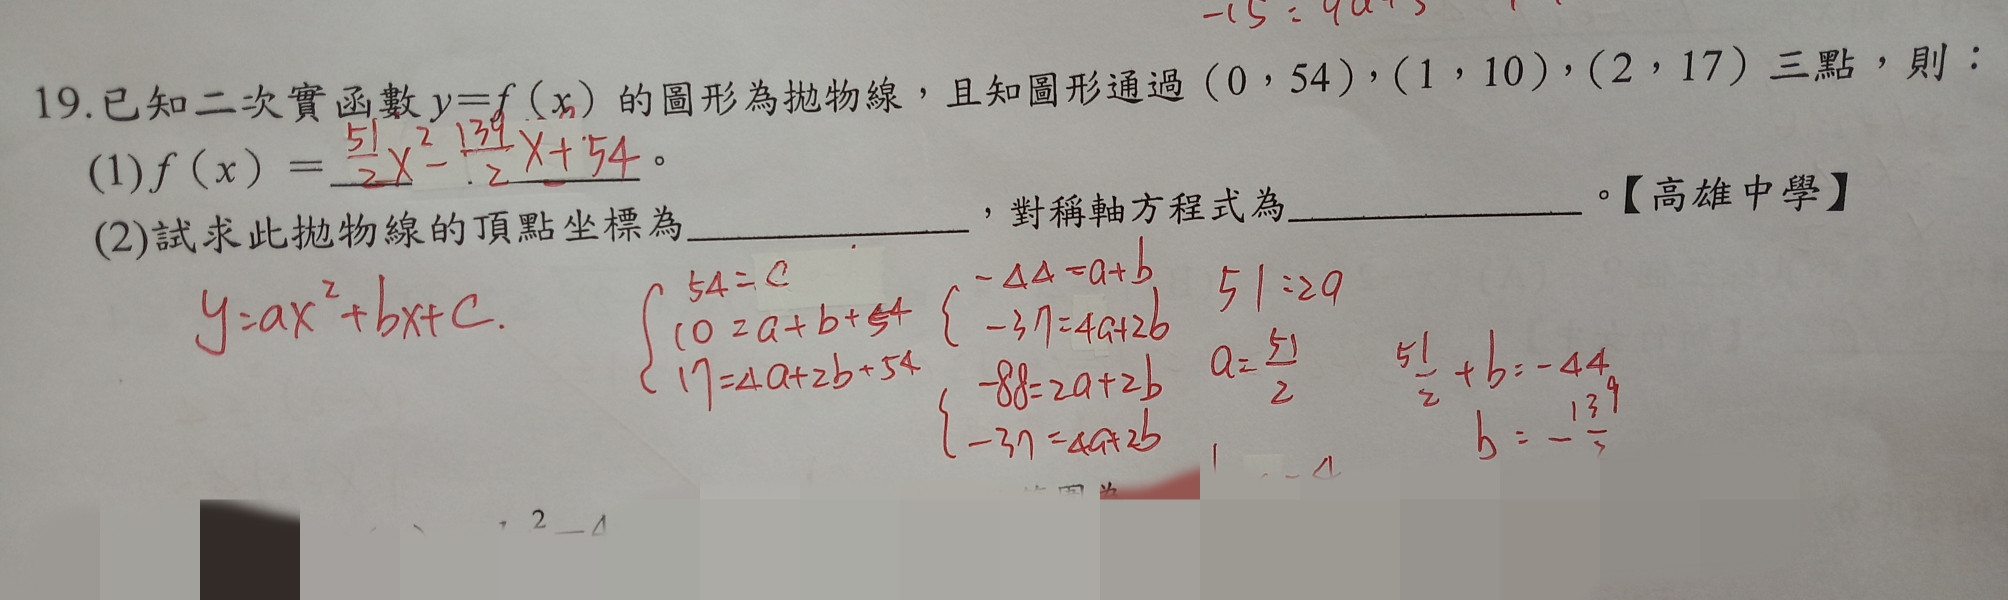 -15=9a+3
19.已知二次實函數y=f(x)的圖形為拋物線，且知圖形通過(0，54)，(1，10)，(2，17)三點，則：
(1)f(x)=51/2 x²-139/2 x+54。
(2)試求此拋物線的頂點坐標為__________，對稱軸方程式為__________。【高雄中學】
y=ax²+bx+c.
54=c
10=a+b+54
17=4a+2b+54
-44=a+b
-37=4a+2b
-88=2a+2b
-37=4a+2b
51=2a
a=51/2
51/2+b=-44
b=-139/2